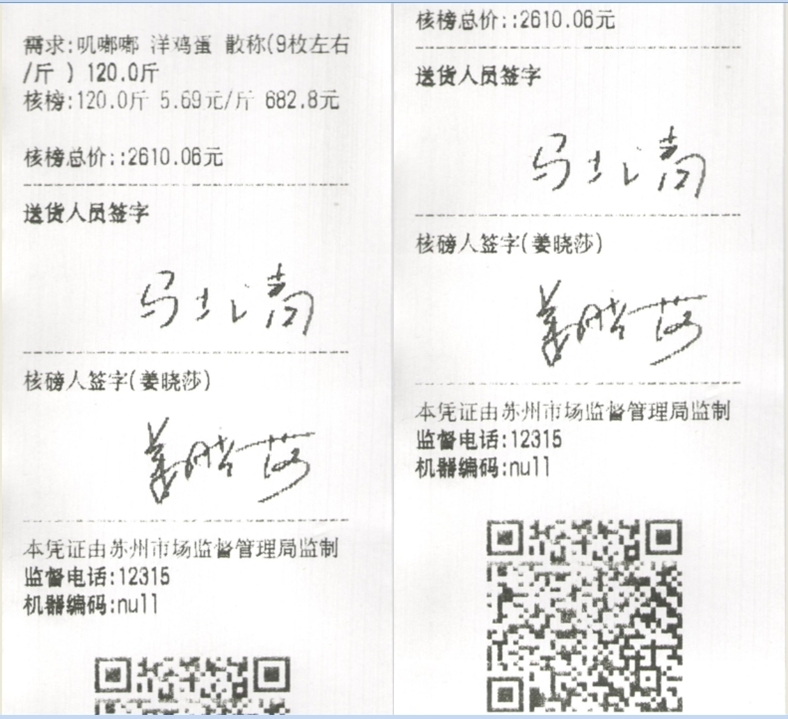 需求:叽嘟嘟 洋鸡蛋 散称(9枚左右
/斤 ) 120.0斤
核榜:120.0斤 5.69元/斤 682.8元
核榜总价::2610.06元
送货人员签字
核磅人签字(姜晓莎)
姜晓莎
本凭证由苏州市场监督管理局监制
监督电话:12315
机器编码:null
核榜总价::2610.06元
送货人员签字
核磅人签字(姜晓莎)
姜晓莎
本凭证由苏州市场监督管理局监制
监督电话:12315
机器编码:null